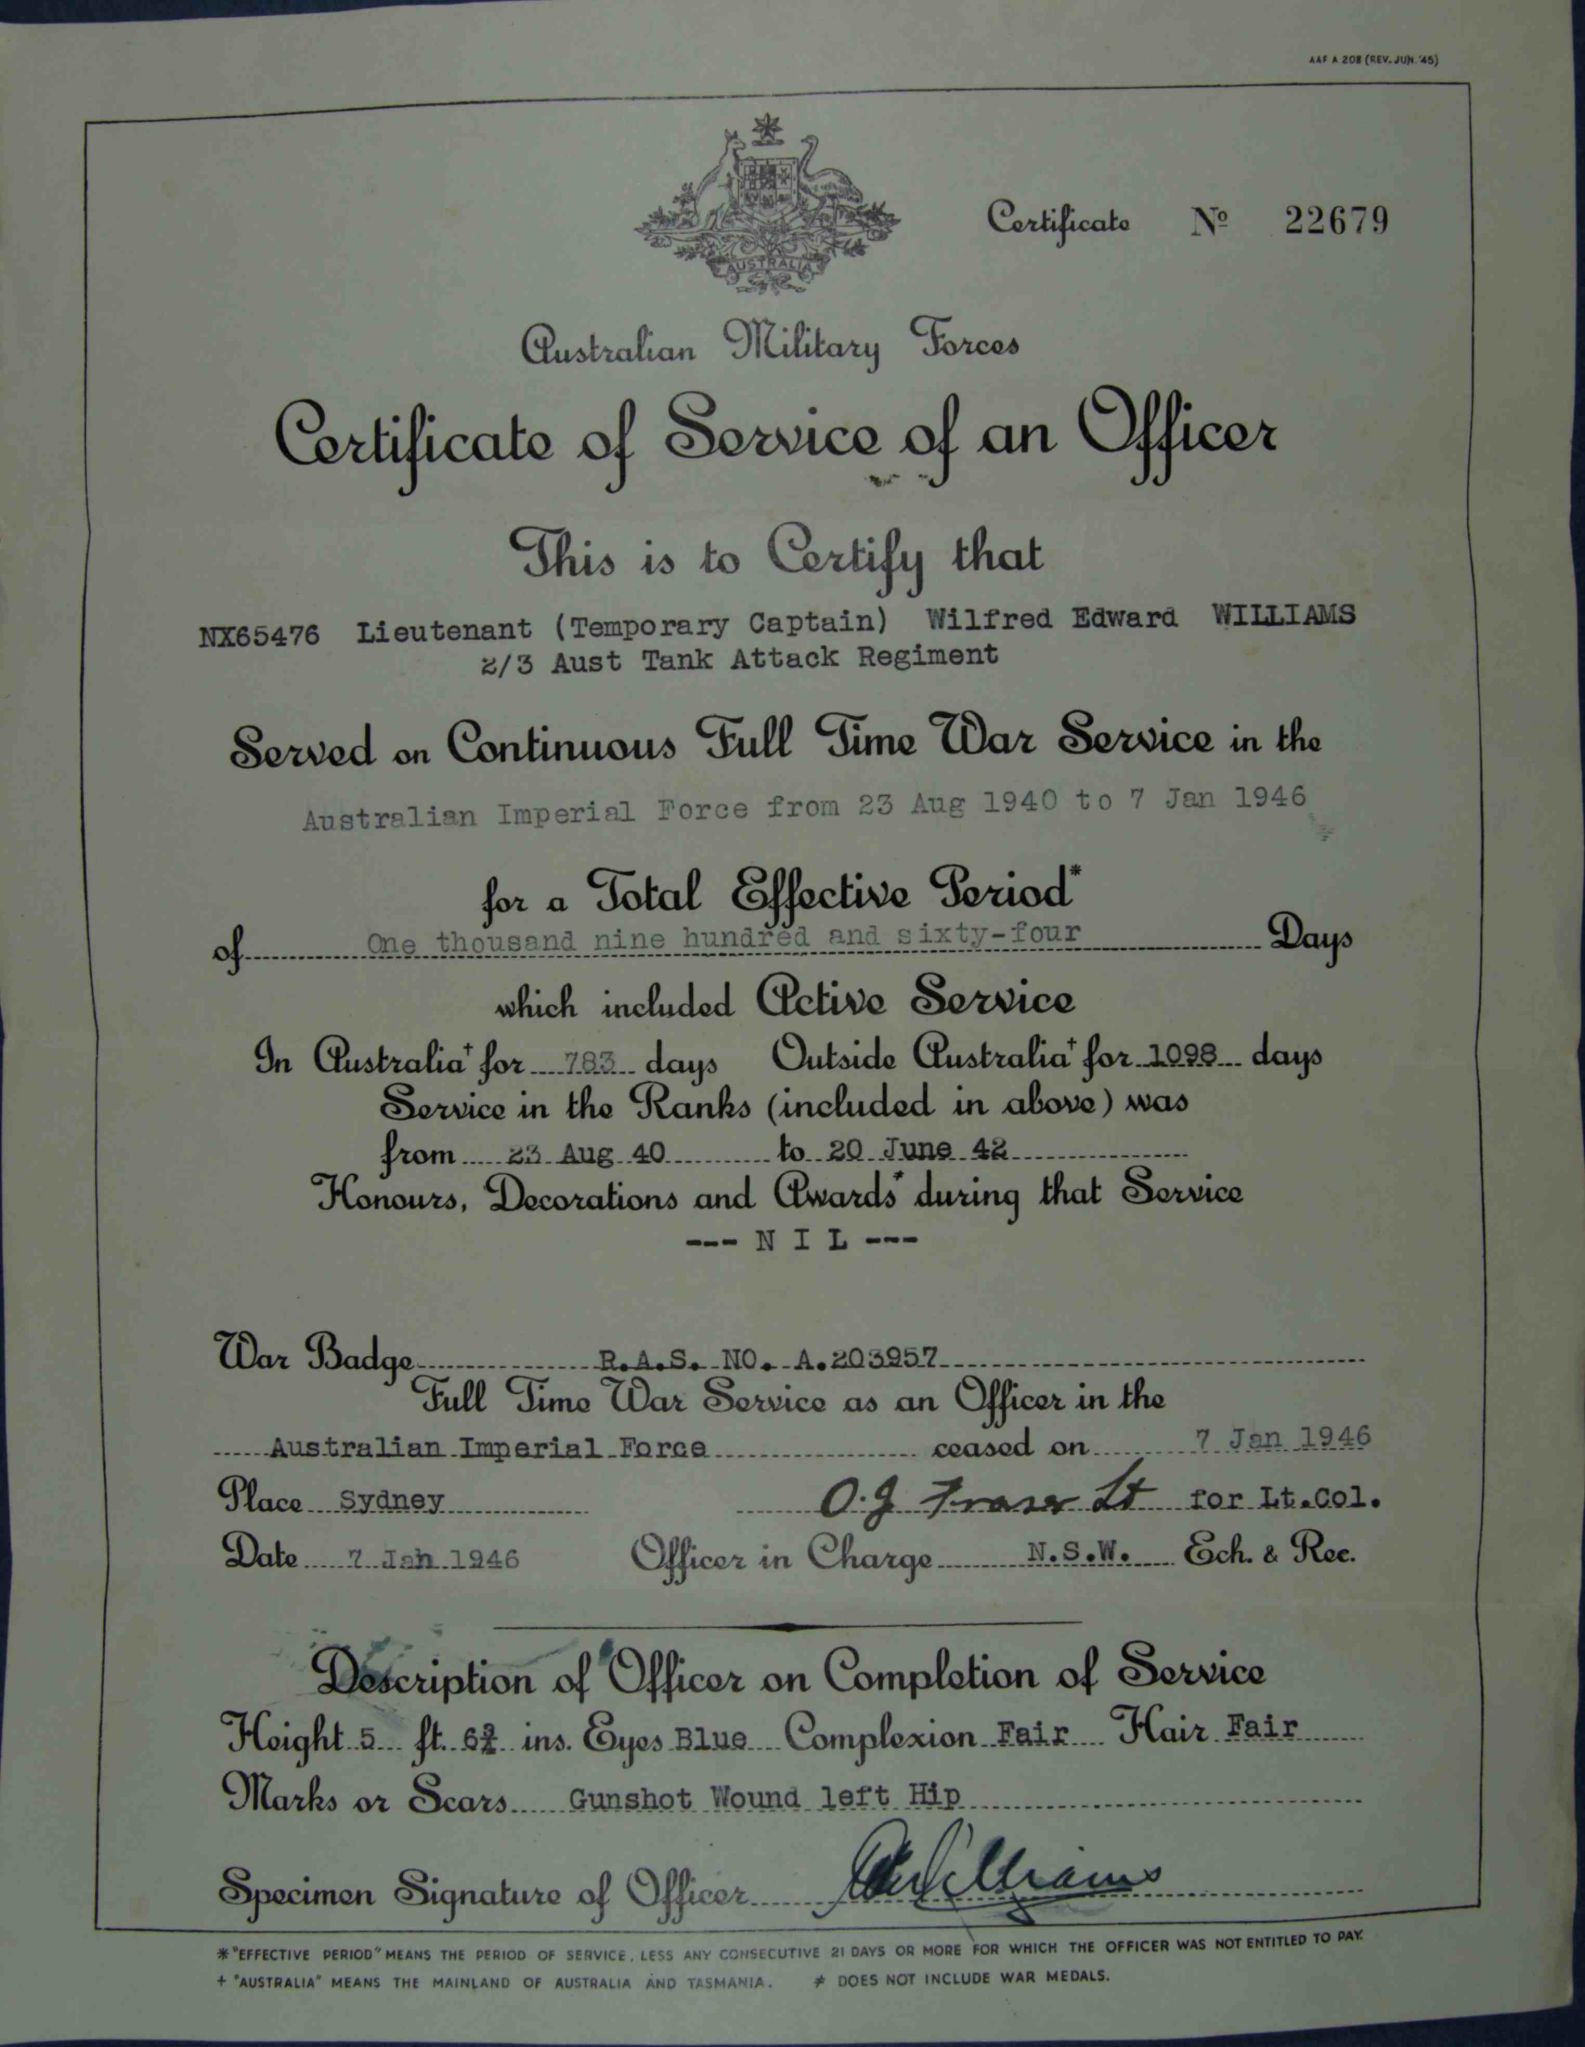 AAF A 208 (REV. JUN. '45)
AUSTRALIA
Certificate No 22679
Australian Military Forces
Certificate of Service of an Officer
This is to Certify that
NX65476 Lieutenant (Temporary Captain) Wilfred Edward WILLIAMS
2/3 Aust Tank Attack Regiment
Served on Continuous Full Time War Service in the
Australian Imperial Force from 23 Aug 1940 to 7 Jan 1946
for a Total Effective Period*
of One thousand nine hundred and sixty-four Days
which included Active Service
In Australia+ for 783 days Outside Australia+ for 1098 days
Service in the Ranks (included in above) was
from 23 Aug 40 to 20 June 42
Honours, Decorations and Awards≠ during that Service
--- N I L ---
War Badge R.A.S. NO. A.203957
Full Time War Service as an Officer in the
Australian Imperial Force ceased on 7 Jan 1946
Place Sydney O.J Fraser Lt for Lt.Col.
Date 7 Jan 1946 Officer in Charge N.S.W. Ech. & Rec.
Description of Officer on Completion of Service
Height 5 ft. 6¾ ins. Eyes Blue Complexion Fair Hair Fair
Marks or Scars Gunshot Wound left Hip
Specimen Signature of Officer Williams
* "EFFECTIVE PERIOD" MEANS THE PERIOD OF SERVICE, LESS ANY CONSECUTIVE 21 DAYS OR MORE FOR WHICH THE OFFICER WAS NOT ENTITLED TO PAY.
+ "AUSTRALIA" MEANS THE MAINLAND OF AUSTRALIA AND TASMANIA. ≠ DOES NOT INCLUDE WAR MEDALS.